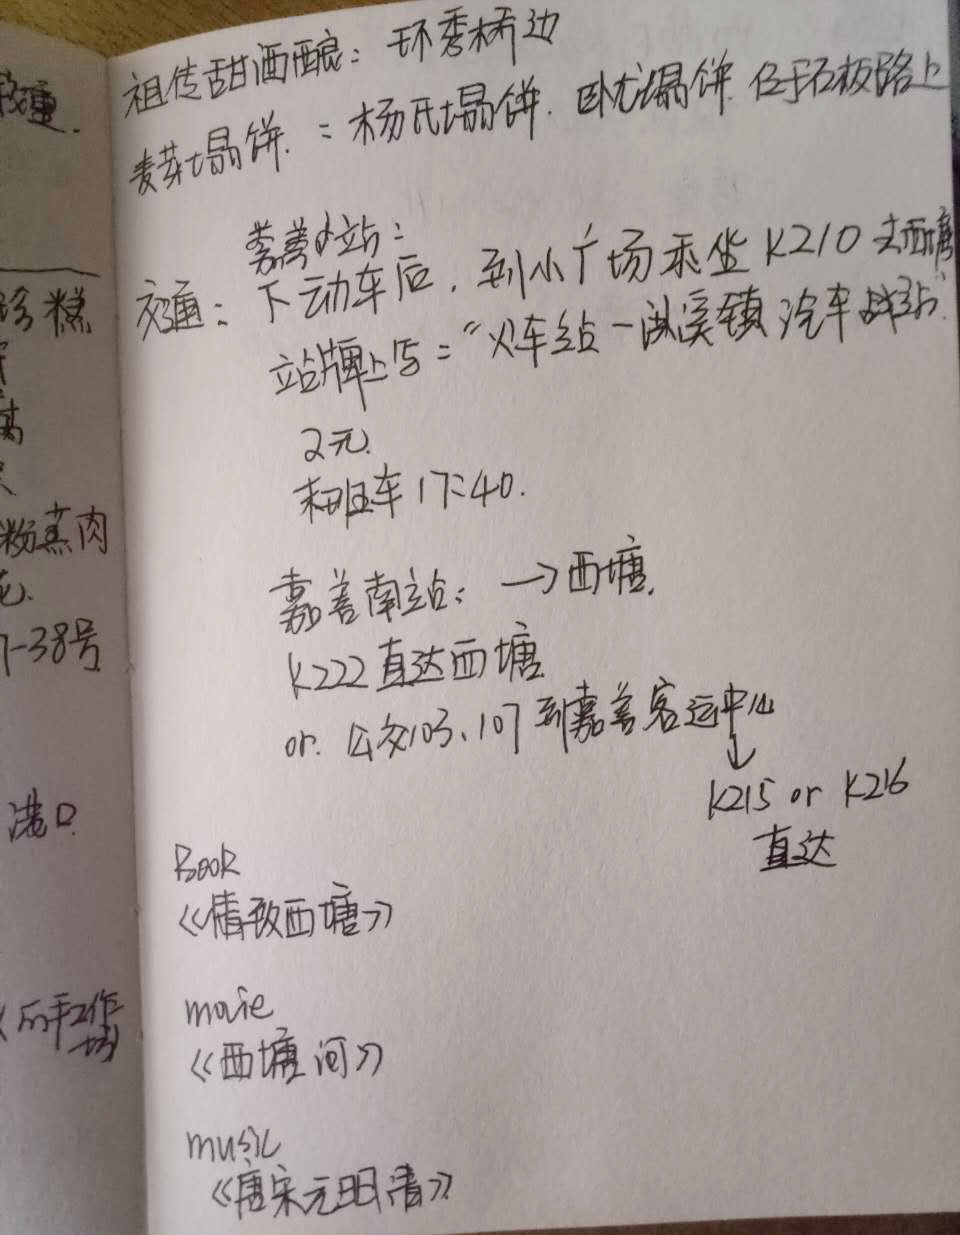 祖传甜酒酿：环秀桥边
麦芽塌饼：杨氏塌饼.卧龙塌饼.位于石板路上
嘉善站：
交通：下动车后，到小广场乘坐K210去西塘
站牌上写："火车站—洪溪镇 汽车站
2元.
末班车17:40.
嘉善南站：→西塘.
K222直达西塘
or.公交103、107到嘉善客运中心
↓
K215 or K216
直达
Book
《情致西塘》
movie
《西塘河》
music
《唐宋元明清》
糕
粉蒸肉
-38号
港口
手工作